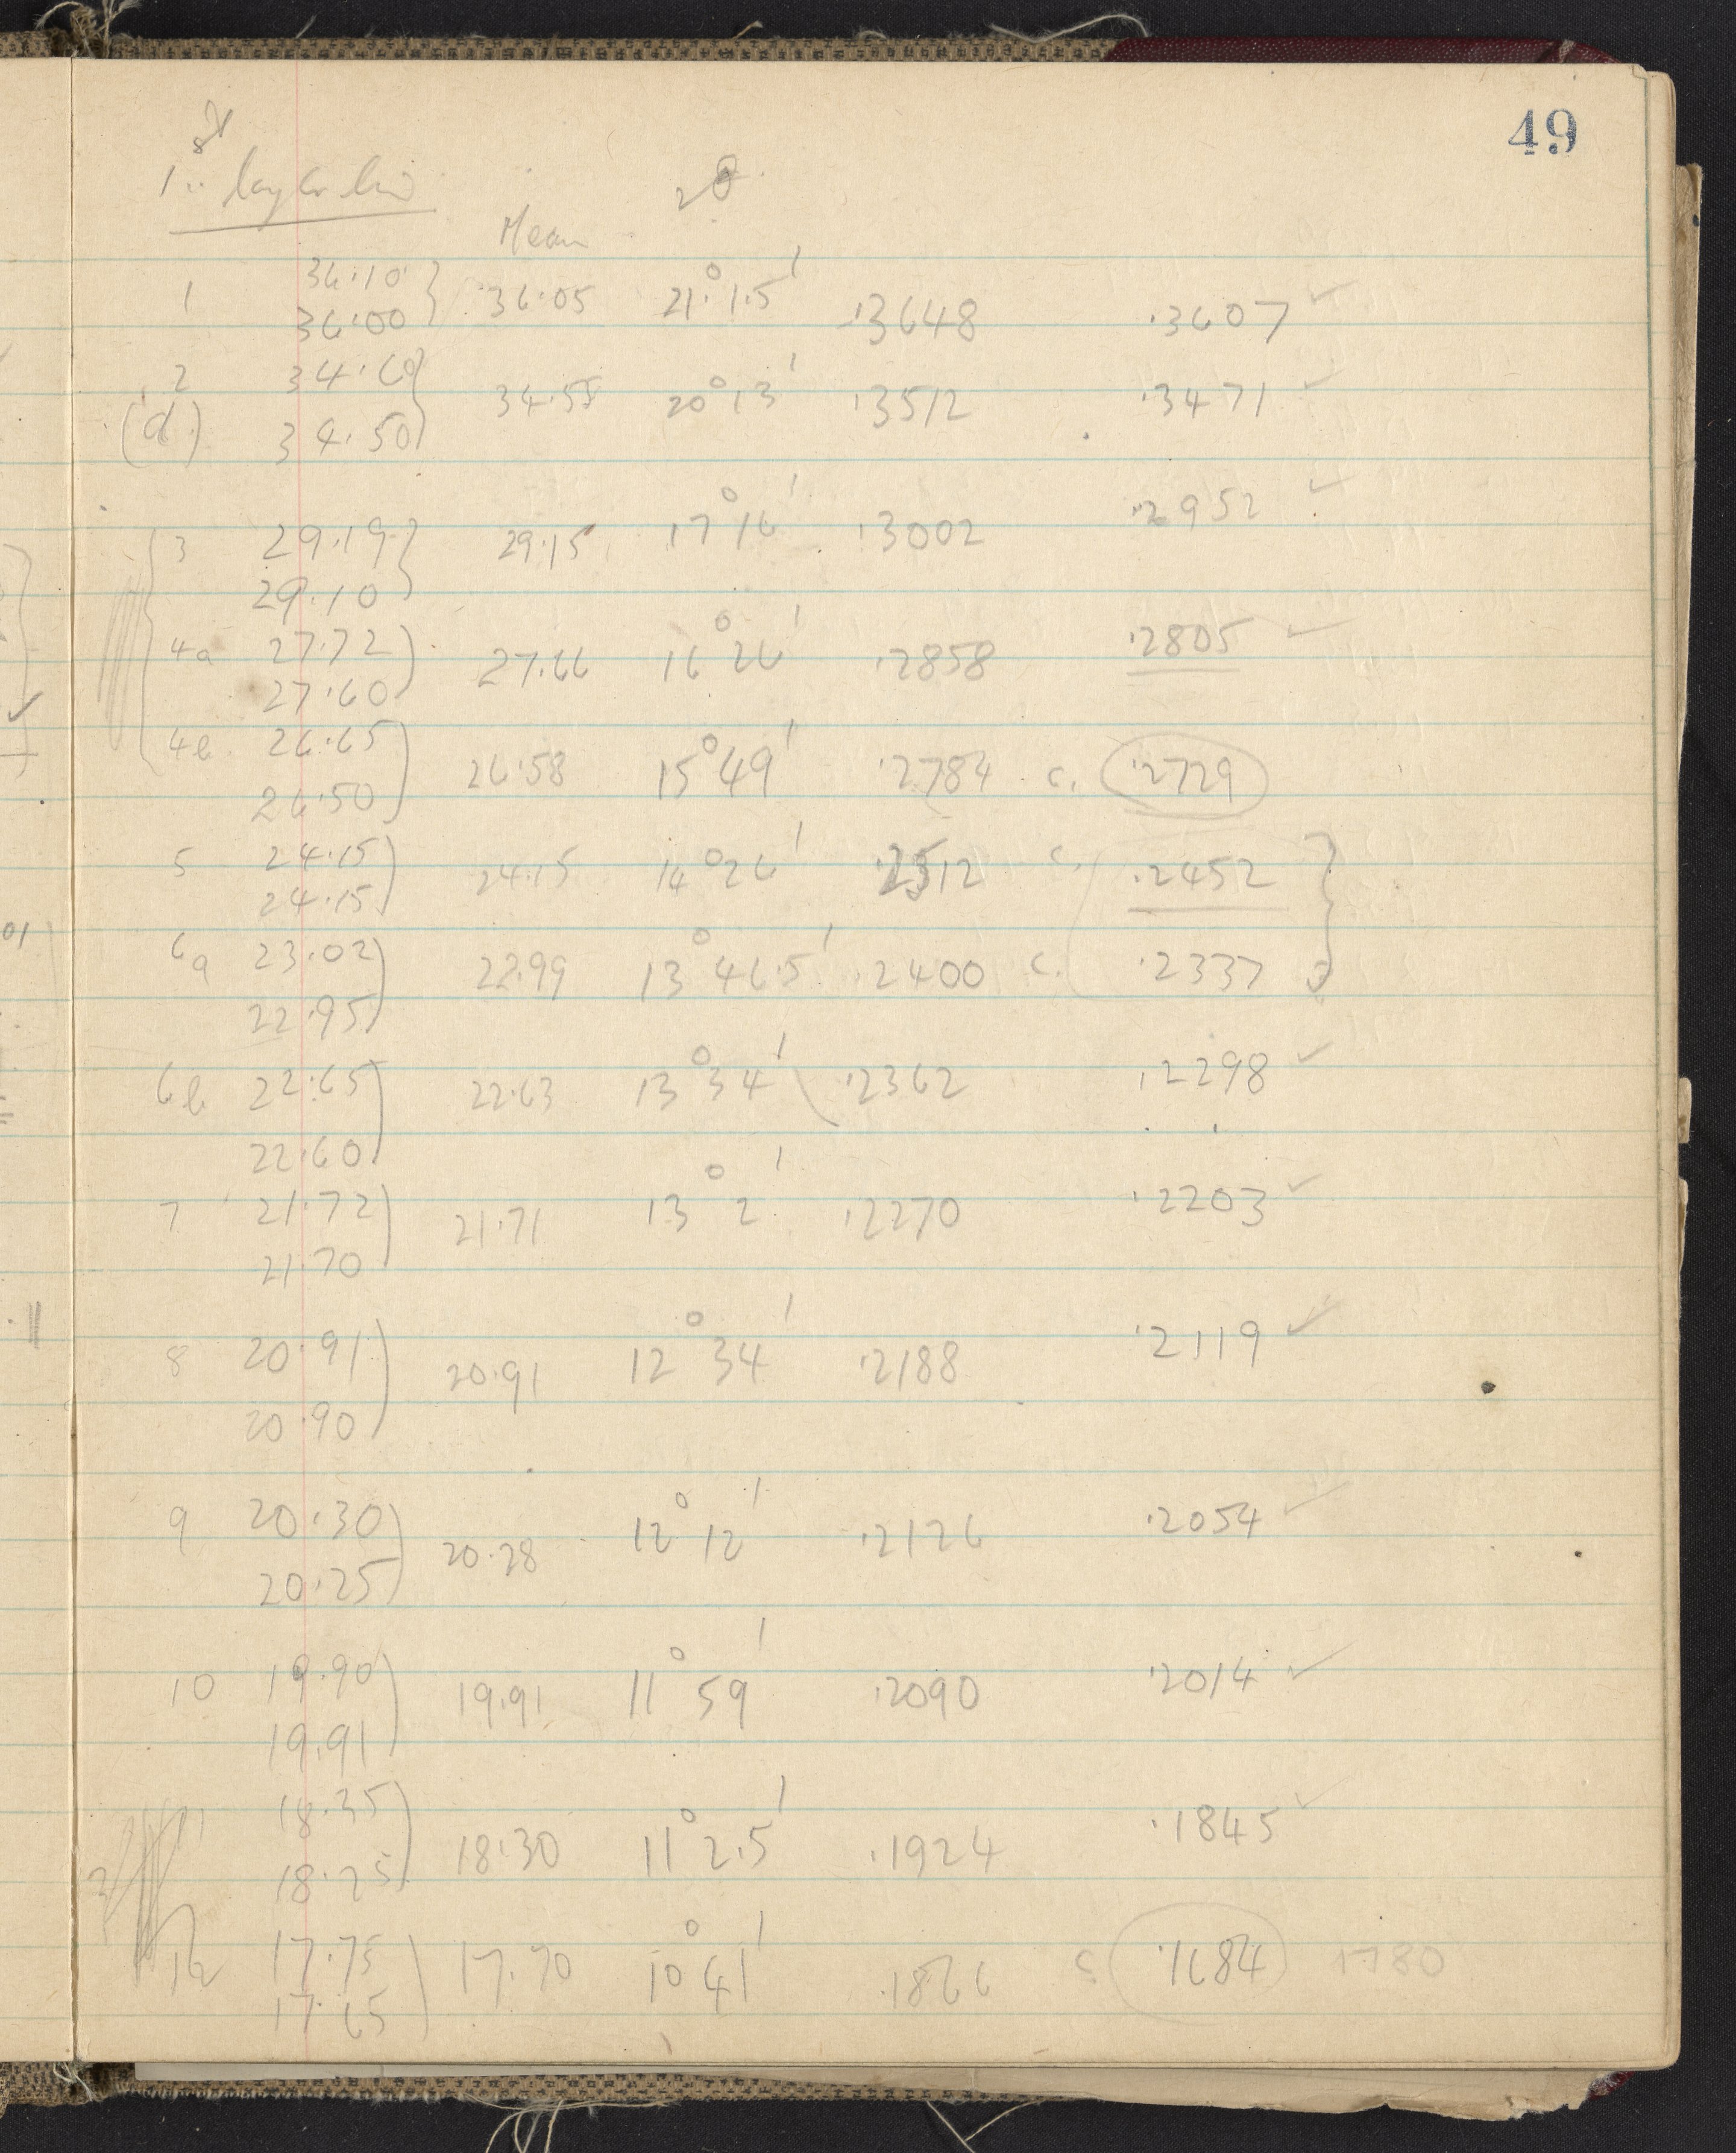 49
1st layer line
Mean 2θ
1 36.10 } 36.05 21° 1.5' .3648 .3607 ✓
36.00
2 34.60 } 34.55 20° 13' .3512 .3471 ✓
(d) 34.50
3 29.19 } 29.15 17° 16' .3002 .2952 ✓
29.10
4a 27.72 ) 27.66 16° 26' .2858 .2805 ✓
27.60
4b 26.65 ) 26.58 15° 49' .2784 c. .2729
26.50
5 24.15 ) 24.15 14° 26' .2512 c. .2452 }
24.15
6a 23.02 ) 22.99 13° 46.5' .2400 c. .2337
22.95
6b 22.65 ) 22.63 13° 34' .2362 .2298 ✓
22.60
7 21.72 ) 21.71 13° 2' .2270 .2203 ✓
21.70
8 20.91 ) 20.91 12° 34' .2188 .2119 ✓
20.90
9 20.30 ) 20.28 12° 12' .2126 .2054 ✓
20.25
10 19.90 ) 19.91 11° 59' .2090 .2014 ✓
19.91
18.35 ) 18.30 11° 2.5' .1924 .1845 ✓
18.25
12 17.75 ) 17.70 10° 41' .1866 c .1684 .1780
17.65